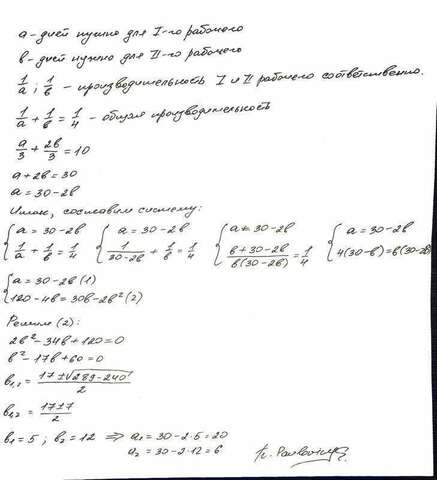 а - дней нужно для I-го рабочего
в - дней нужно для II-го рабочего
1/а ; 1/в - производительность I и II рабочего соответственно.
1/а + 1/в = 1/4 - общая производительность
а/3 + 2в/3 = 10
а + 2в = 30
а = 30 - 2в
Итак, составим систему:
{ а = 30 - 2в { а = 30 - 2в { а = 30 - 2в { а = 30 - 2в
1/а + 1/в = 1/4 1/(30-2в) + 1/в = 1/4 (в + 30 - 2в)/(в(30-2в)) = 1/4 4(30-в) = в(30-2в)
{ а = 30 - 2в (1)
120 - 4в = 30в - 2в² (2)
Решим (2):
2в² - 34в + 120 = 0
в² - 17в + 60 = 0
в1,2 = (17 ± √(289 - 240))/2
в1,2 = (17 ± 7)/2
в1 = 5 ; в2 = 12 ⇒ а1 = 30 - 2·5 = 20
а2 = 30 - 2·12 = 6